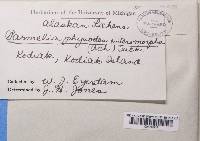 Herbarium of the University of Michigan
Alaskan Lichens
Parmelia physodes enteromorpha
(Ach.) Tuck.
Kodiak, Kodiak Island
Collected by W. J. Eyerdam
Determined by G. N. Jones